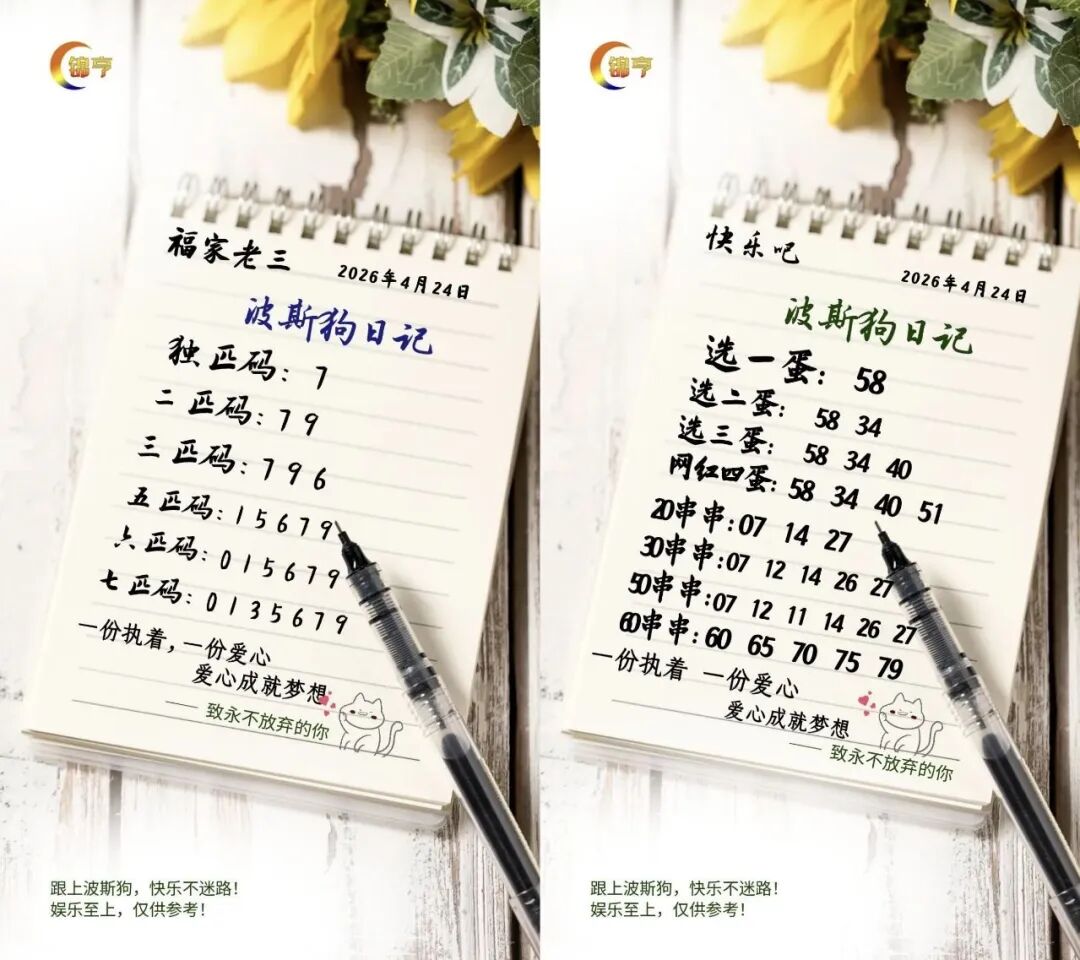 锦亨
福家老三
2026年4月24日
波斯狗日记
独匹码: 7
二匹码: 7 9
三匹码: 7 9 6
五匹码: 1 5 6 7 9
六匹码: 0 1 5 6 7 9
七匹码: 0 1 3 5 6 7 9
一份执着,一份爱心
爱心成就梦想
—— 致永不放弃的你
跟上波斯狗，快乐不迷路！
娱乐至上，仅供参考！
锦亨
快乐吧
2026年4月24日
波斯狗日记
选一蛋: 58
选二蛋: 58 34
选三蛋: 58 34 40
网红四蛋: 58 34 40 51
20串串: 07 14 27
30串串: 07 12 14 26 27
50串串: 07 12 11 14 26 27
60串串: 60 65 70 75 79
一份执着 一份爱心
爱心成就梦想
—— 致永不放弃的你
跟上波斯狗，快乐不迷路！
娱乐至上，仅供参考！